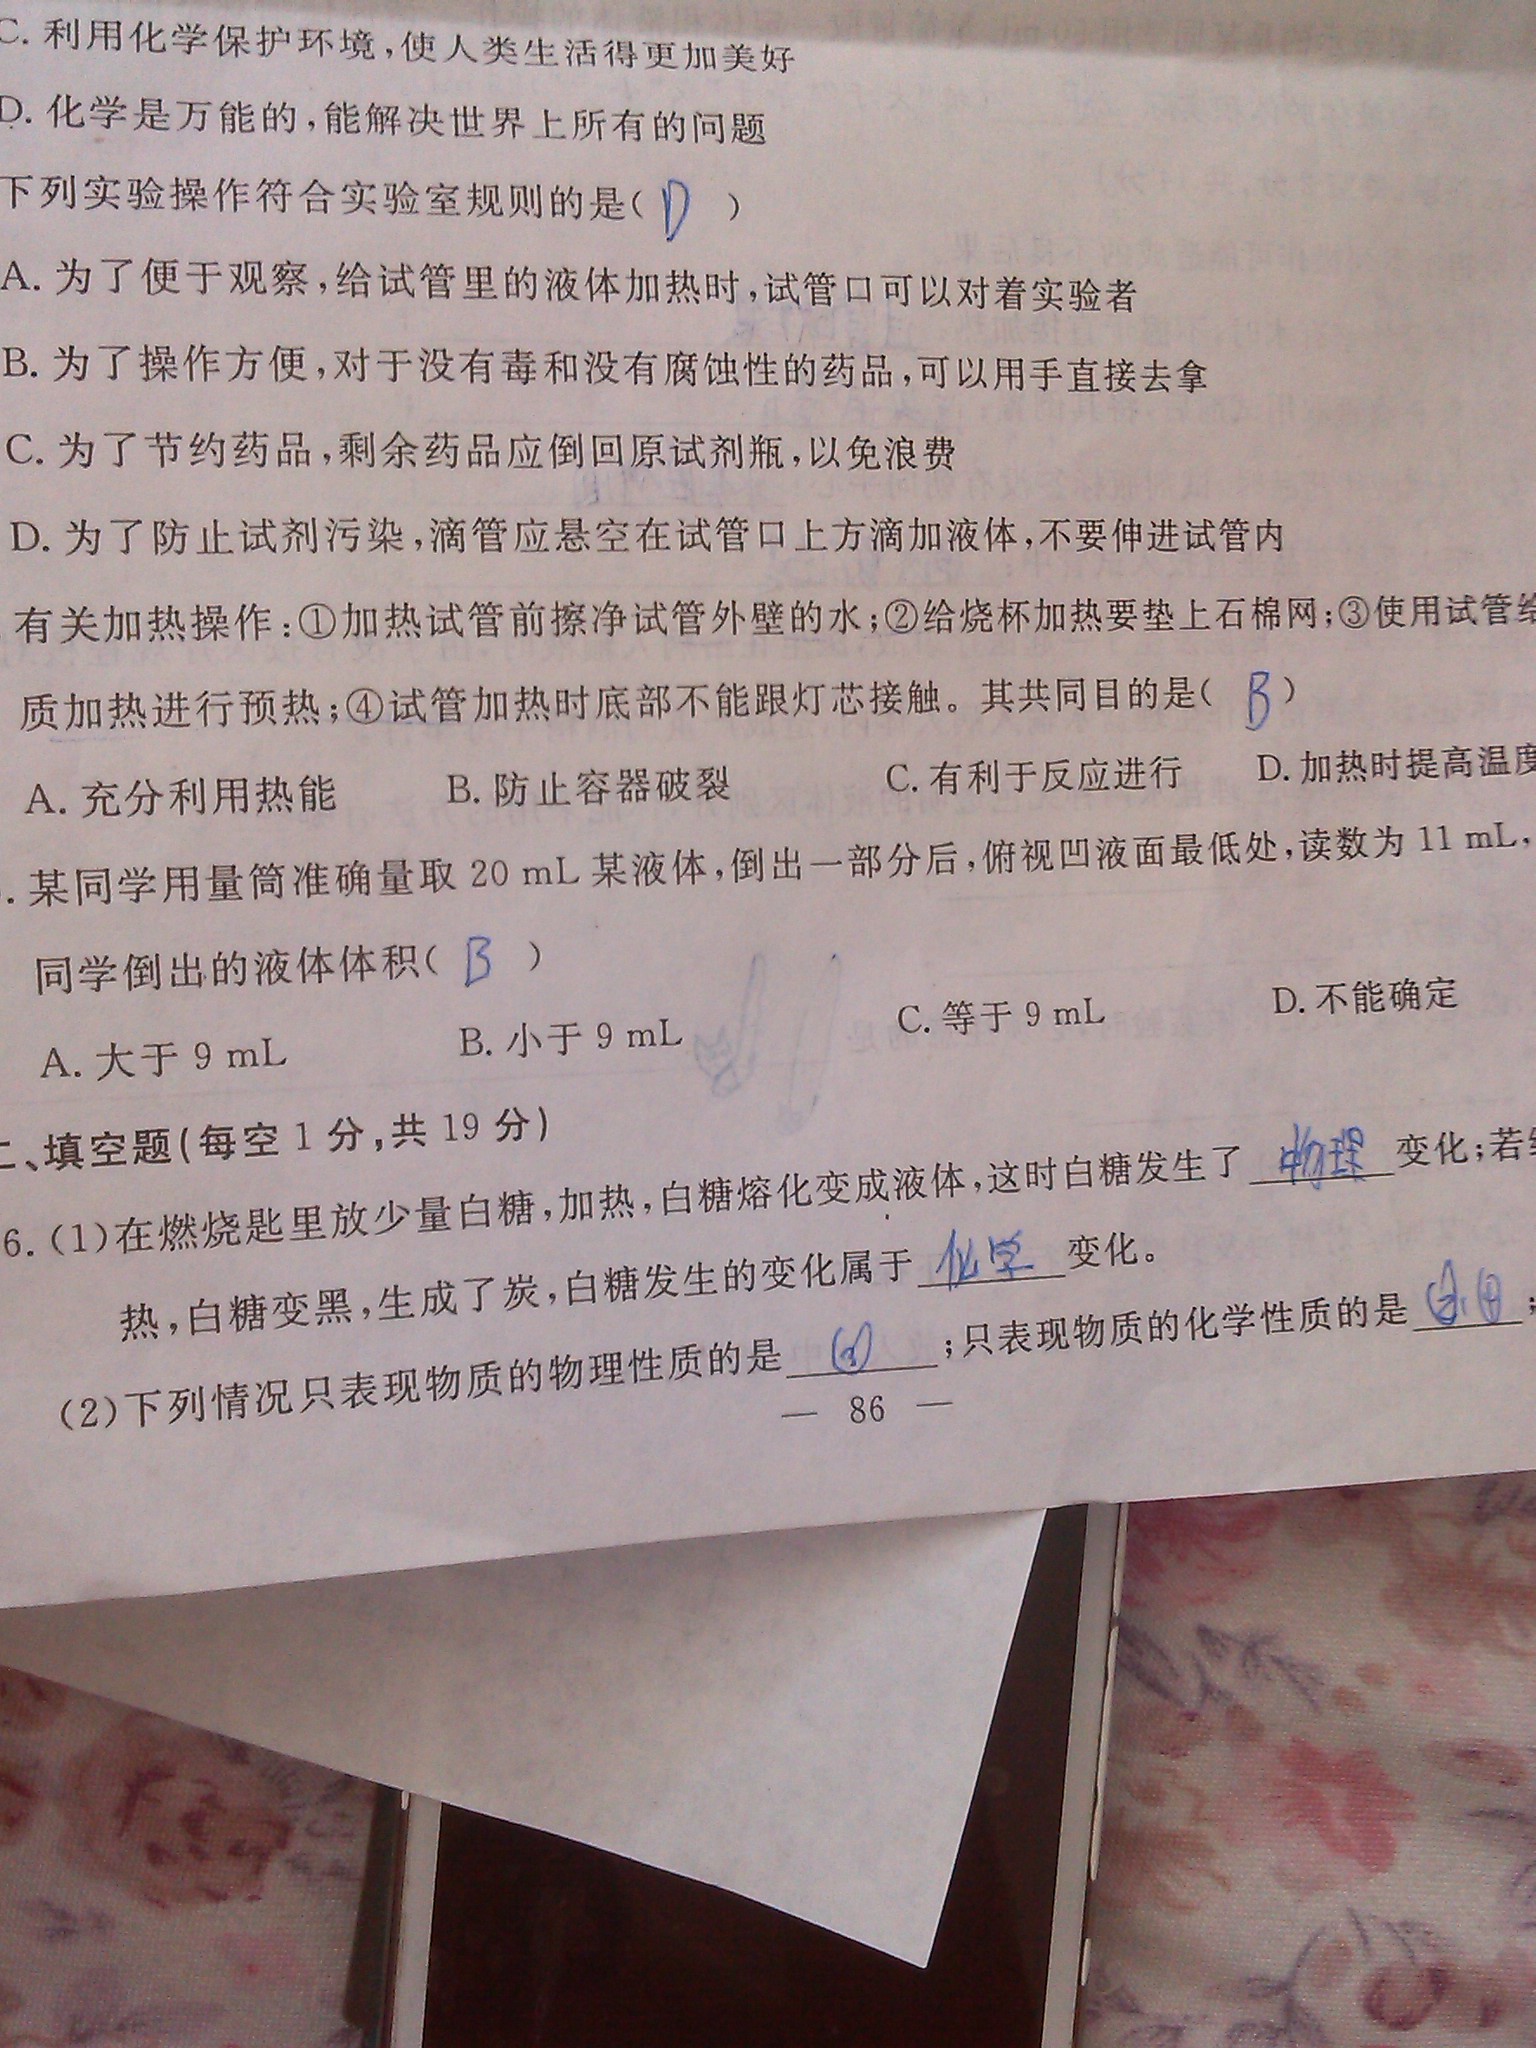 C. 利用化学保护环境,使人类生活得更加美好
D. 化学是万能的,能解决世界上所有的问题
下列实验操作符合实验室规则的是( D )
A. 为了便于观察,给试管里的液体加热时,试管口可以对着实验者
B. 为了操作方便,对于没有毒和没有腐蚀性的药品,可以用手直接去拿
C. 为了节约药品,剩余药品应倒回原试剂瓶,以免浪费
D. 为了防止试剂污染,滴管应悬空在试管口上方滴加液体,不要伸进试管内
有关加热操作:①加热试管前擦净试管外壁的水;②给烧杯加热要垫上石棉网;③使用试管给
质加热进行预热;④试管加热时底部不能跟灯芯接触。其共同目的是( B )
A. 充分利用热能 B. 防止容器破裂 C. 有利于反应进行 D. 加热时提高温度
. 某同学用量筒准确量取 20 mL 某液体,倒出一部分后,俯视凹液面最低处,读数为 11 mL,
同学倒出的液体体积( B )
A. 大于 9 mL B. 小于 9 mL C. 等于 9 mL D. 不能确定
二、填空题(每空 1 分,共 19 分)
6. (1)在燃烧匙里放少量白糖,加热,白糖熔化变成液体,这时白糖发生了 物理 变化;若
热,白糖变黑,生成了炭,白糖发生的变化属于 化学 变化。
(2)下列情况只表现物质的物理性质的是 ;只表现物质的化学性质的是 ;
— 86 —